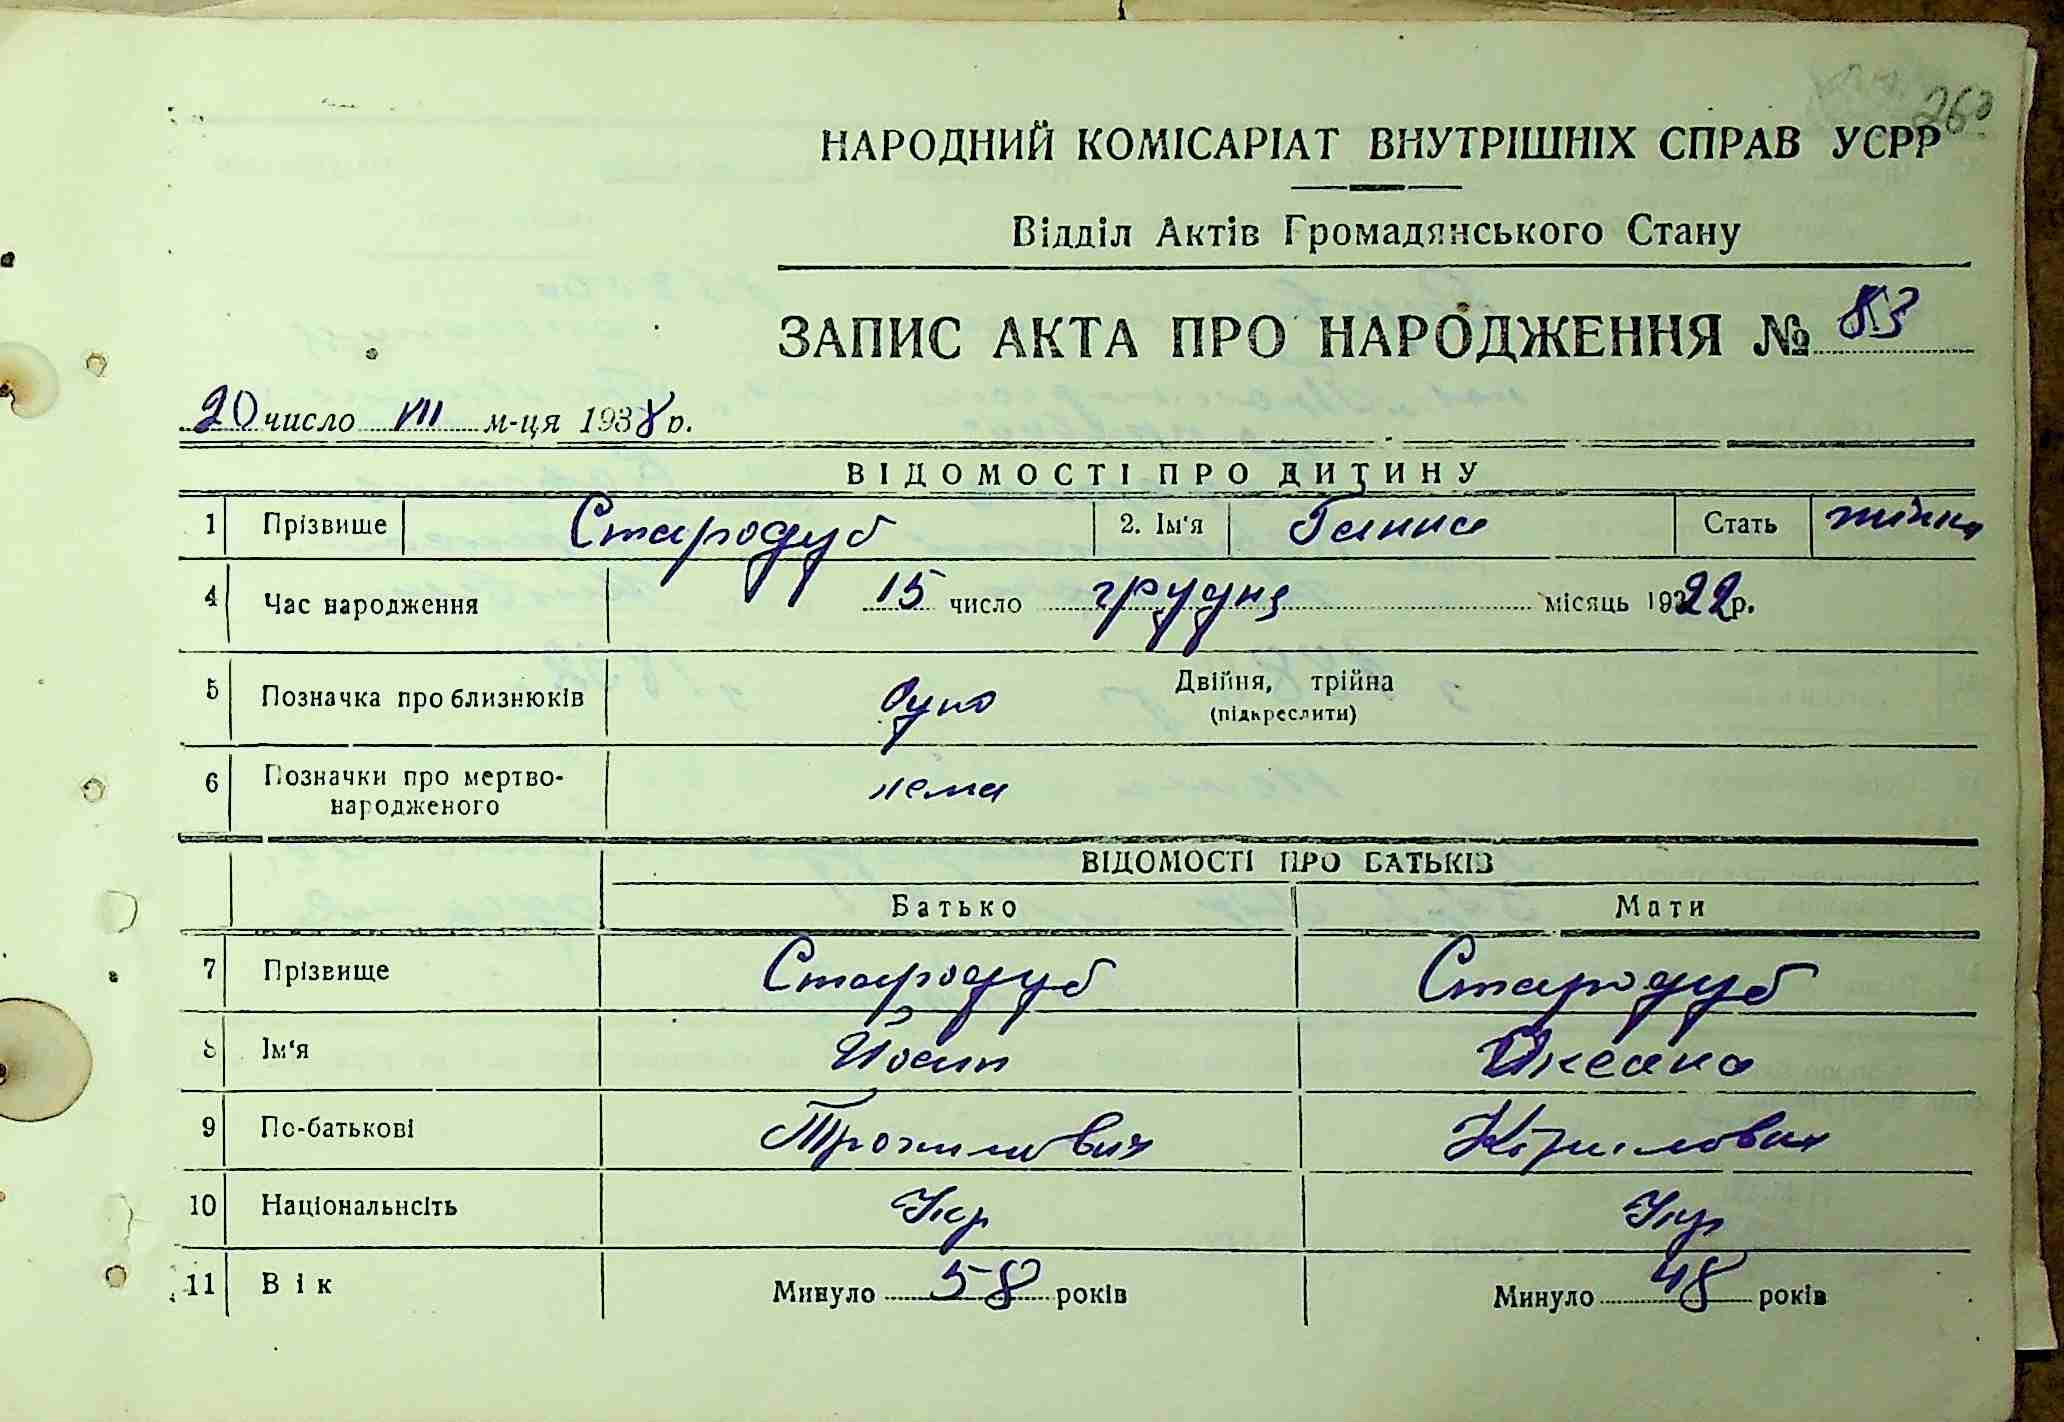 260
НАРОДНИЙ КОМІСАРІАТ ВНУТРІШНІХ СПРАВ УСРР
Відділ Актів Громадянського Стану
ЗАПИС АКТА ПРО НАРОДЖЕННЯ № 83
20 число VIII м-ця 1938 р.
ВІДОМОСТІ ПРО ДИТИНУ
1 Прізвище Стародуб 2. Ім'я Ганна Стать жіноч
4 Час народження 15 число грудня місяць 1922 р.
5 Позначка про близнюків одно Двійня, трійна
(підкреслити)
6 Позначки про мертво-
народженого нема
ВІДОМОСТІ ПРО БАТЬКІВ
Батько Мати
7 Прізвище Стародуб Стародуб
8 Ім'я Йосип Оксана
9 По-батькові Трохимович Кирилович
10 Національнсіть Укр Укр
11 Вік Минуло 58 років Минуло 48 років